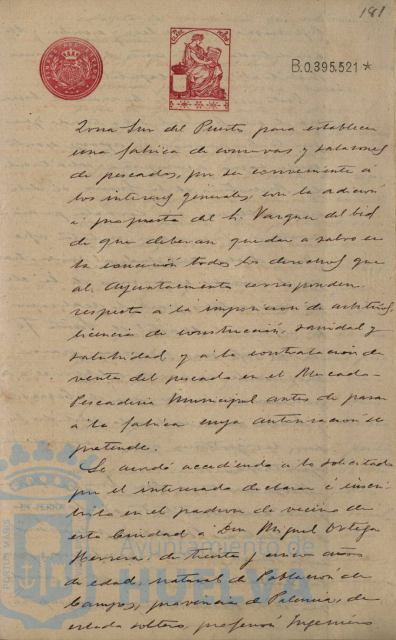 181
B.0.395.521*
Zona Sur del Puerto para establecer
una fabrica de conservas y salazones
de pescados, por ser conveniente a
los intereses generales, con la adición
á propuesta del Sr. Vazquez del Cid
de que deberan quedar a salvo en
la concesión todos los derechos que
al Ayuntamiento corresponden
respecto á la imposicion de arbitrios,
licencia de construcción, sanidad y
salubridad y á la contratación de
venta del pescado en el Mercado
Pescaderia Municipal antes de pasar
á la fabrica cuya autorizacion se
pretende.
Se acordó accediendo a lo solicitado
por el interesado declarar é inscri
birlo en el padron de vecinos de
esta Ciudad á Don Miguel Ortega
Herrera de treinta y años
de edad, natural de Población de
Campos, provincia de Palencia, de
estado soltero, profesión Ingeniero
Ayuntamiento de
HUELVA